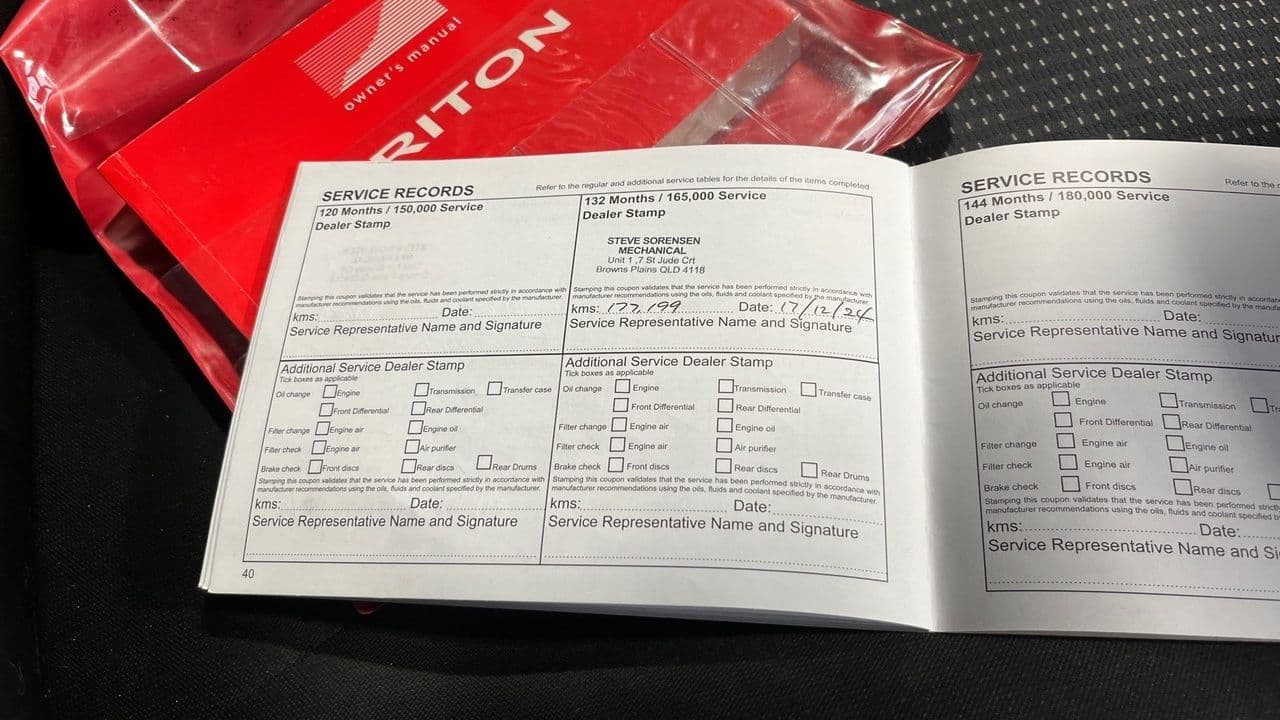 owner's manual
RITON
SERVICE RECORDS
Refer to the regular and additional service tables for the details of the items completed
120 Months / 150,000 Service
Dealer Stamp
Stamping this coupon validates that the service has been performed strictly in accordance with
manufacturer recommendations using the oils, fluids and coolant specified by the manufacturer.
kms: Date:
Service Representative Name and Signature
Additional Service Dealer Stamp
Tick boxes as applicable
Oil change Engine Transmission Transfer case
Front Differential Rear Differential
Filter change Engine air Engine oil
Filter check Engine air Air purifier
Brake check Front discs Rear discs Rear Drums
Stamping this coupon validates that the service has been performed strictly in accordance with
manufacturer recommendations using the oils, fluids and coolant specified by the manufacturer.
kms: Date:
Service Representative Name and Signature
40
132 Months / 165,000 Service
Dealer Stamp
STEVE SORENSEN
MECHANICAL
Unit 1 ,7 St Jude Crt
Browns Plains QLD 4118
Stamping this coupon validates that the service has been performed strictly in accordance with
manufacturer recommendations using the oils, fluids and coolant specified by the manufacturer.
kms: 177,199 Date: 17/12/24
Service Representative Name and Signature
Additional Service Dealer Stamp
Tick boxes as applicable
Oil change Engine Transmission Transfer case
Front Differential Rear Differential
Filter change Engine air Engine oil
Filter check Engine air Air purifier
Brake check Front discs Rear discs Rear Drums
Stamping this coupon validates that the service has been performed strictly in accordance with
manufacturer recommendations using the oils, fluids and coolant specified by the manufacturer.
kms: Date:
Service Representative Name and Signature
SERVICE RECORDS
Refer to the
144 Months / 180,000 Service
Dealer Stamp
Stamping this coupon validates that the service has been performed strictly in
manufacturer recommendations using the oils, fluids and coolant specified by the
kms: Date:
Service Representative Name and
Additional Service Dealer Stamp
Tick boxes as applicable
Oil change Engine Transmission
Front Differential Rear Differential
Filter change Engine air Engine oil
Filter check Engine air Air purifier
Brake check Front discs Rear discs
Stamping this coupon validates that the service has been performed
manufacturer recommendations using the oils, fluids and coolant specified
kms: Date:
Service Representative Name and